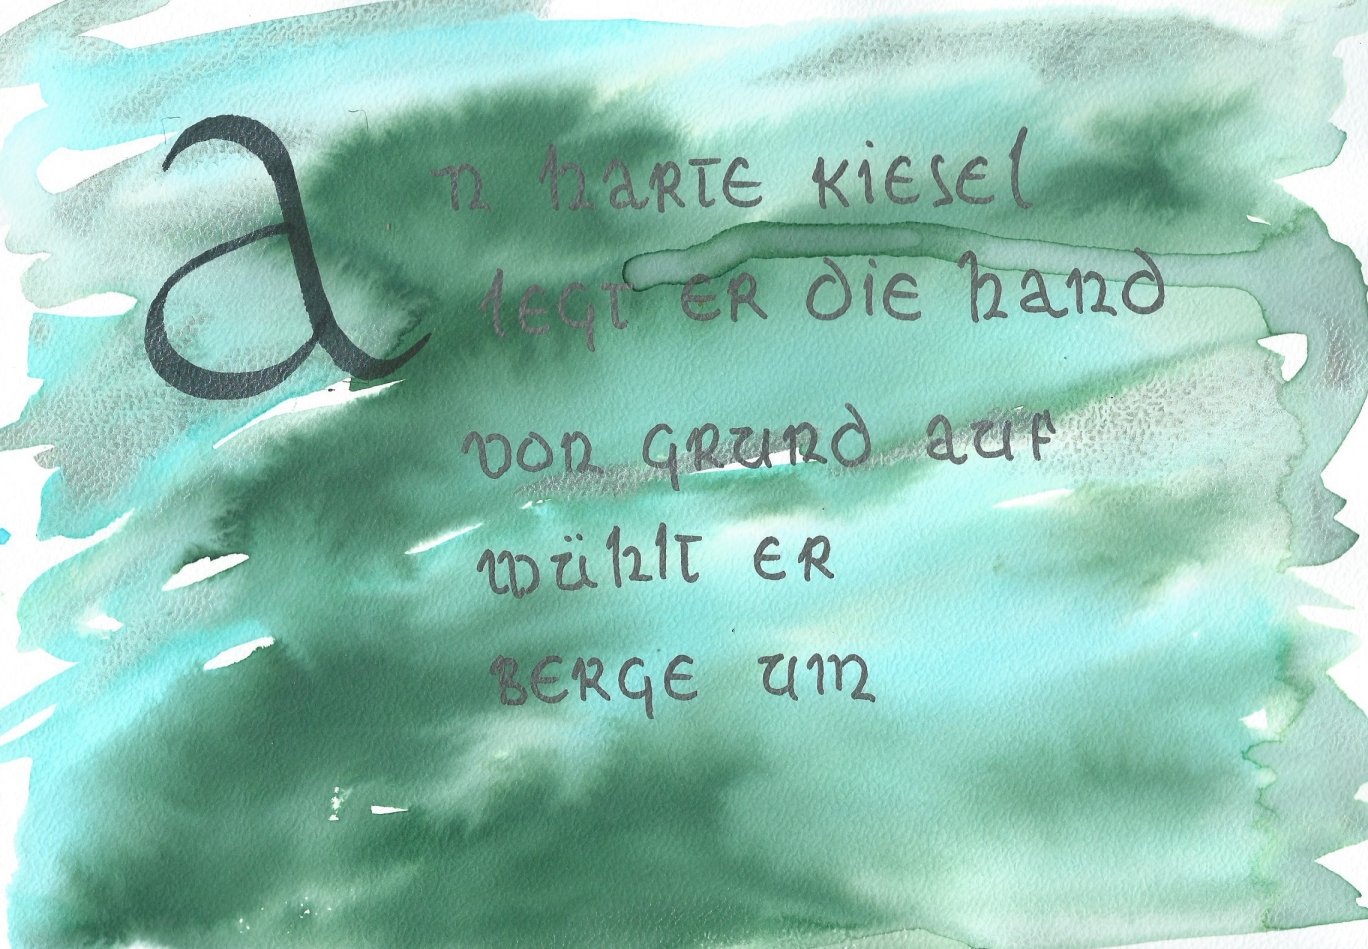 an harte kiesel
legt er die hand
von grund auf
wühlt er
berge um